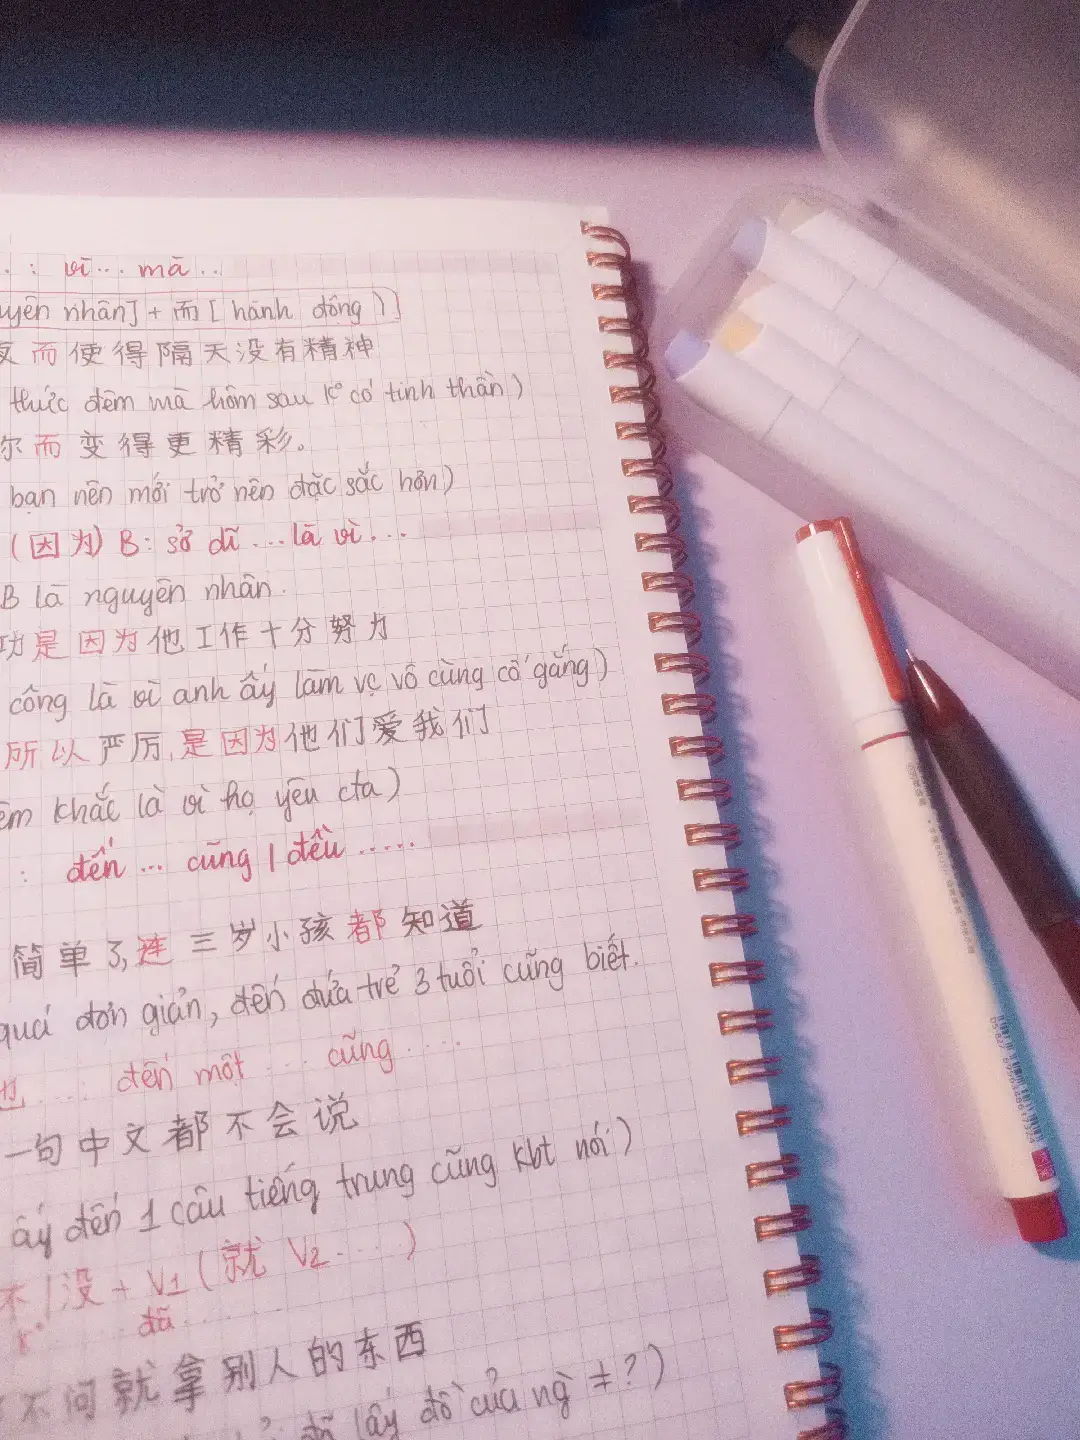 : vì... mà..
yên nhân] + 而 [hành động)]
而使得隔天没有精神
thức đêm mà hôm sau k° có tinh thần)
尔而变得更精彩。
bạn nên mới trở nên đặc sắc hơn)
(因为) B: sở dĩ ... là vì...
B là nguyên nhân.
功是因为他工作十分努力
công là vì anh ấy làm vc vô cùng cố gắng)
所以严厉,是因为他们爱我们
êm khắc là vì họ yêu cta)
: đến ... cũng / đều .....
简单了,连三岁小孩都知道
quá đơn giản, đến đứa trẻ 3 tuổi cũng biết.
也 .... đến một ... cũng ....
一句中文都不会说
ấy đến 1 câu tiếng trung cũng kbt nói)
不/没 + V1 (就 V2 ....)
k° ..... đã ....
不问就拿别人的东西
đã lấy đồ của ng ≠?)